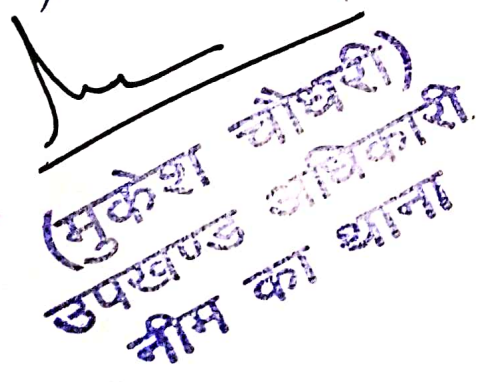 (मुकेश चौधरी)
उपखण्ड अधिकारी
नीम का थाना